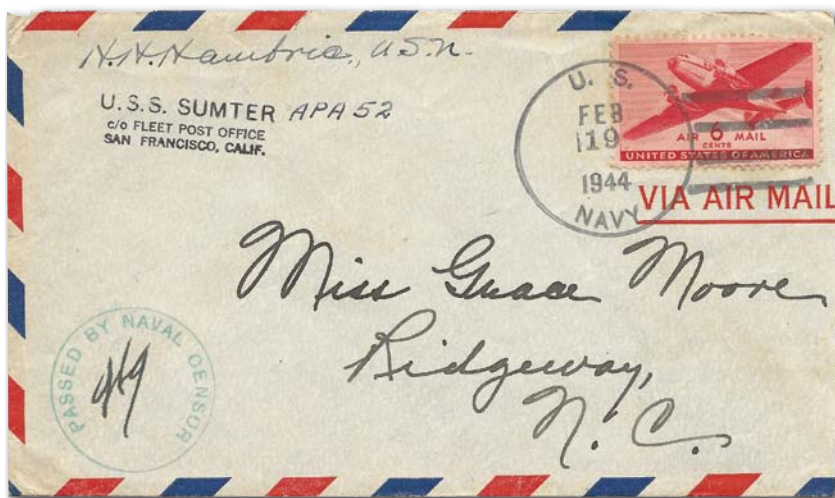 H.H.Hambric, U.S.N.
U.S.S. SUMTER APA 52
c/o FLEET POST OFFICE
SAN FRANCISCO, CALIF.
U. S.
FEB
19
1944
NAVY
AIR 6 MAIL
CENTS
UNITED STATES OF AMERICA
VIA AIR MAIL
Miss Grace Moore
Ridgeway,
N. C.
PASSED BY NAVAL CENSOR